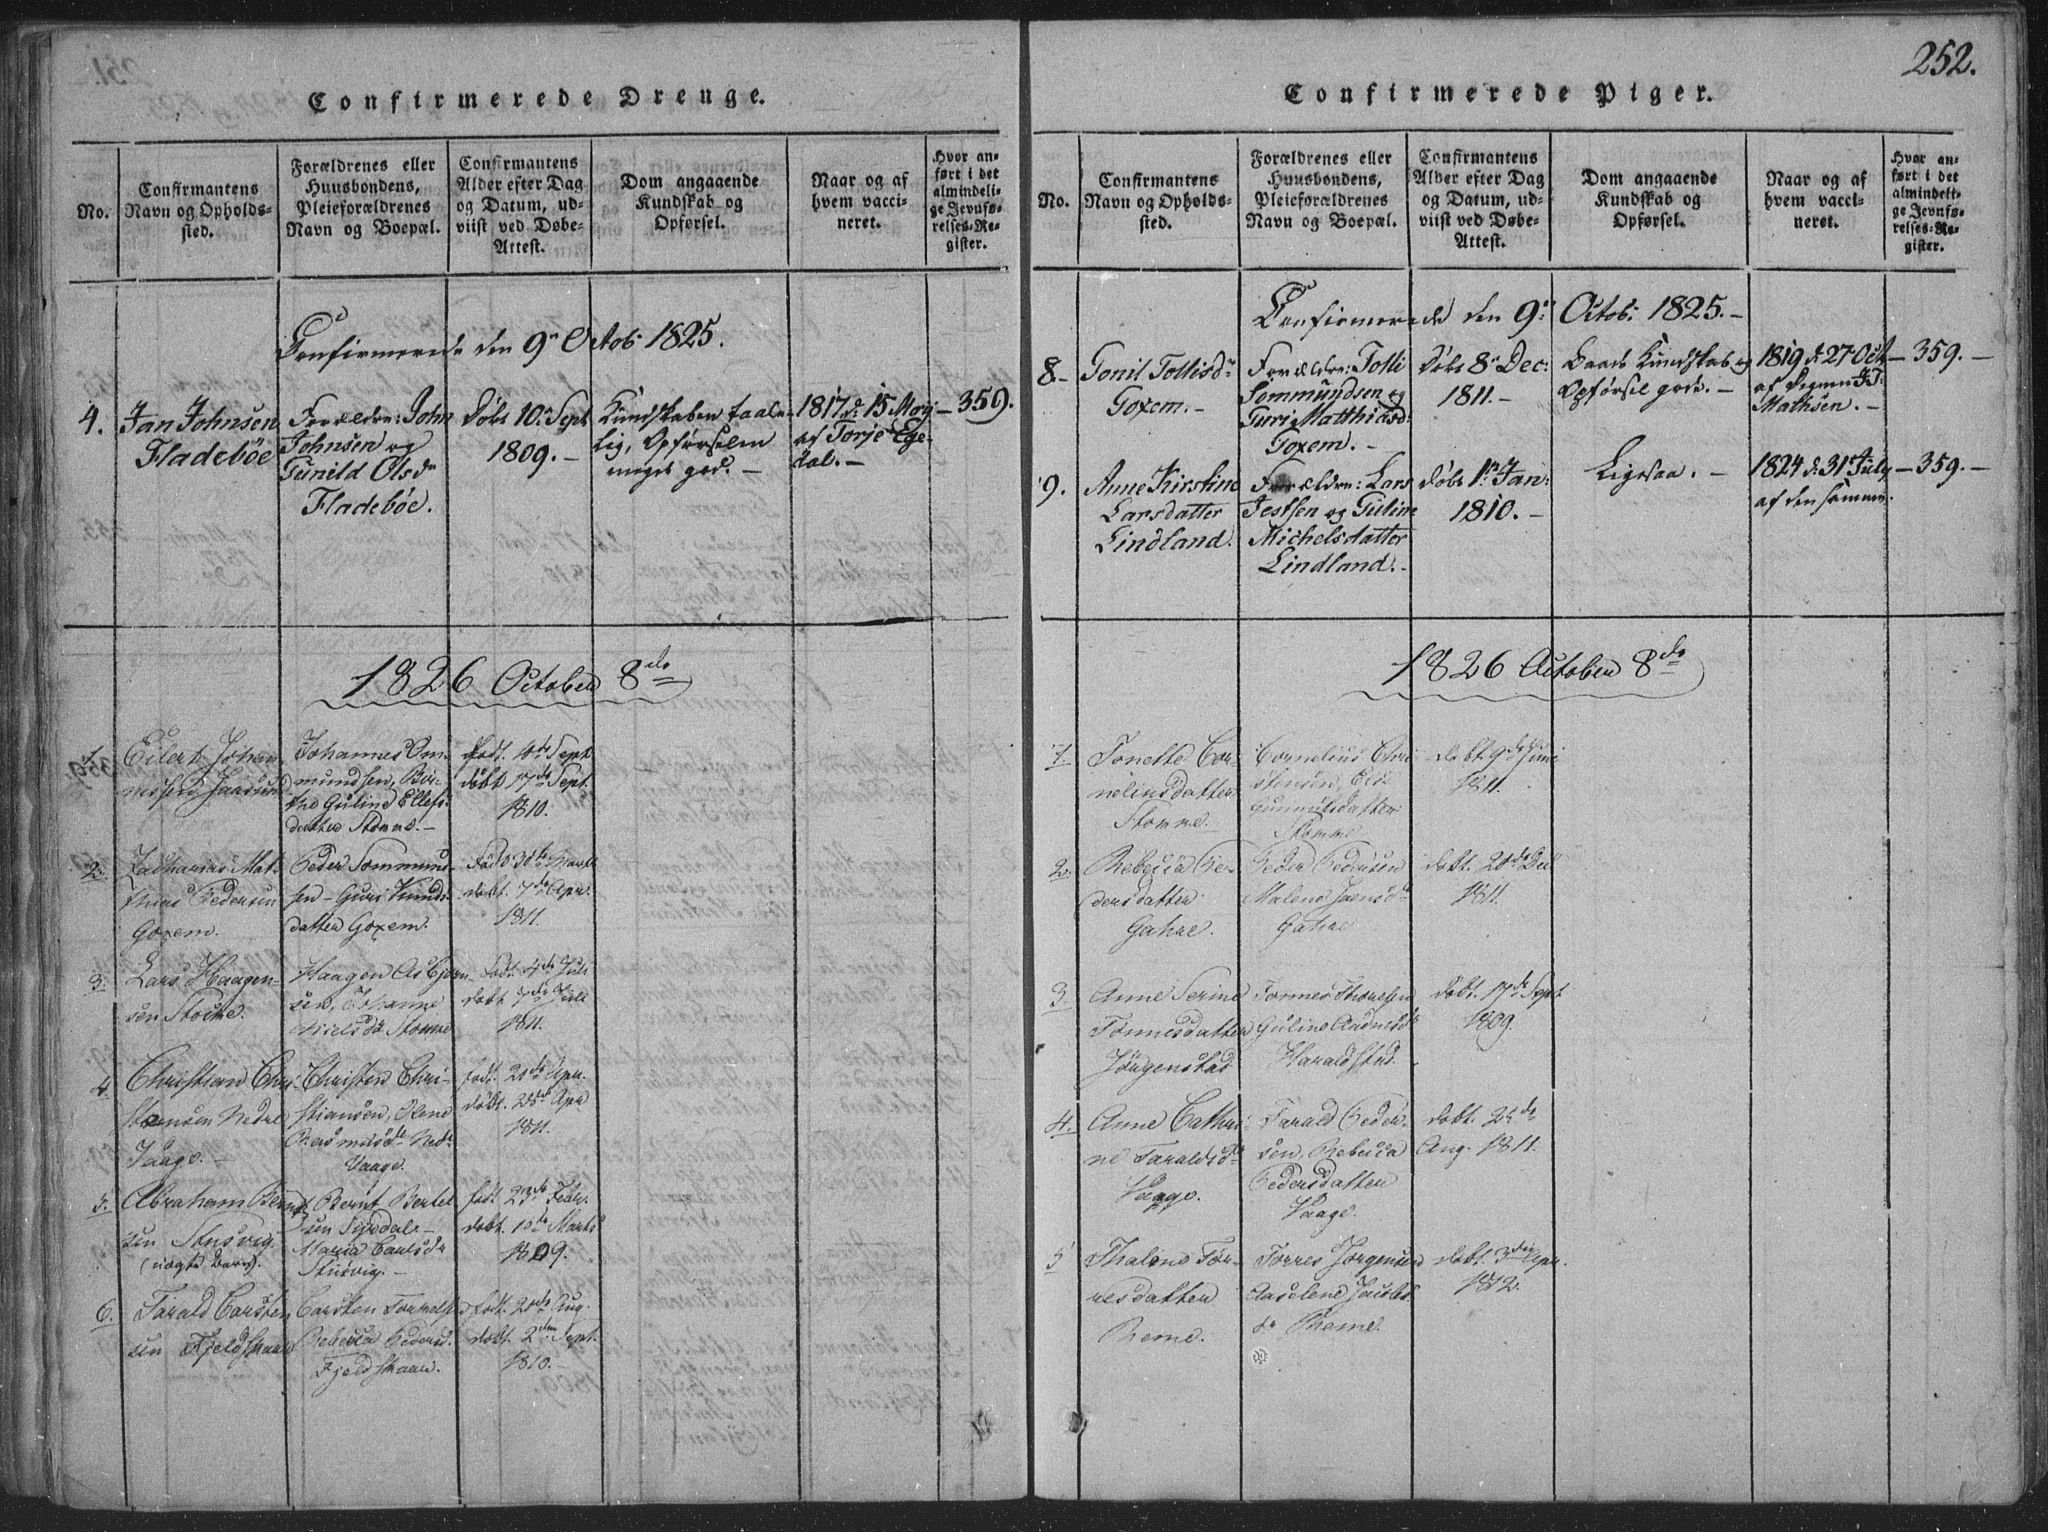 252.
Confirmerede Drenge.
No.
Confirmantens
Navn og Opholds-
sted.
Forældrenes eller
Huusbondens,
Pleieforældrenes
Navn og Boepæl.
Confirmantens
Alder efter Dag
og Datum, ud-
viist ved Døbe-
Attest.
Dom angaaende
Kundskab og
Opførsel.
Naar og af
hvem vacci-
neret.
Hvor an-
ført i det
almindeli-
ge Jevnfø-
relses-Re-
gister.
Confirmerede den 9de Octob: 1825.
4.
Jan Johnsen
Fladebøe
Forældre: John
Johnsen og
Gunild Olsdr
Fladebøe.
Døbt 10de Sept
1809. -
Kundskaben taale-
lig, Opførselen
meget god. -
1817 d. 15 May
af Torje Ege-
dal. -
359.
1826 October 8de
1.
Eilert Johan-
nessen Jaasund
Johannes Om-
mundsen, Bir-
the Guline Ellefs
datter Stomne. -
Født. 10de Sept
døbt 17de Sept.
1810.
2.
Zacharias Mat-
thias Pedersen
Goxem.
Peder Tommund-
sen - Guri Knuds-
datter Goxem.
Født 30te Marts
døbt. 7de Apr.
1811.
3.
Lars Haagen-
sen Stomne.
Haagen Asbjørn-
sen,
Nielsdr Stomne
Født. 4de Juli
døbt 7de Juli
1811.
4.
Christian Chri-
stensen Nedre
Vaage. -
Christen Chri-
stiansen,
Rasmusdr Nedr
Vaage.
født. 20de Apr.
døbt. 28de Apr
1811.
5.
Abraham Bernt
sen Stusvig.
(uægte Barn).
Bernt Bertel
sen Syrdal -
Maria Carlsdr
Stusvig. -
født. 23de Febr.
døbt. 10de Marts
1809.
6.
Tarald Carsten
sen Fjeldskaar
Carsten Tormodsen
Rebecca Pedersd.
Fjeldskaar.
født. 20de Aug.
døbt. 2den Sept.
1810. -
Confirmerede Piger.
No.
Confirmantens
Navn og Opholds-
sted.
Forældrenes eller
Huusbondens,
Pleieforældrenes
Navn og Boepæl.
Confirmantens
Alder efter Dag
og Datum, ud-
viist ved Døbe-
Attest.
Dom angaaende
Kundskab og
Opførsel.
Naar og af
hvem vacci-
neret.
Hvor an-
ført i det
almindeli-
ge Jevnfø-
relses-Re-
gister.
Confirmerede den 9de Octob: 1825. -
8. -
Gonil Tollisdr
Goxem. -
Forældre: Tolli
Tommundsen og
Guri Matthiasd:
Goxem. -
Døbt 8de Dec:
1811. -
Baade Kundskab og
Opførsel gode. -
1819 d. 27 Oct
af Degnen
Mathsen. -
359. -
9.
Anne Kirstine
Larsdatter
Lindland.
Forældre: Lars
Jessen og Guline
Michelsdatter
Lindland. -
Døbt 1te Jan:
1810. -
Ligesaa. -
1824 d. 31 July
af den samme.
359. -
1826 October 8de
1.
Tonette Cor-
neliusdatter
Stomne.
Cornelius Chri-
stensen, Else
Gunmundsdatter
Stomne
døbt 9de Juni
1811.
2.
Rebecca Pe-
dersdatter
Gahre.
Peder Pedersen
Malene Jaensdr
Gahre
døbt. 26de Dec
1811.
3.
Anne Serine
Tønnesdatter
Jørgenstad
Tønnes Thoresen
Guline Aadnesdr
Haraldstad.
døbt. 17de Sept
1809.
4.
Anne Cathri-
ne Taraldsdr
Vaage.
Tarald Peder-
sen, Rebecca
Pedersdatter
Vaage.
døbt. 25de
Aug. 1811.
5
Thalene Tor-
resdatter
Rerne.
Torres Jørgensen
Aaselene Jacobs
dr Rerne.
døbt. 3die Apr.
1812.